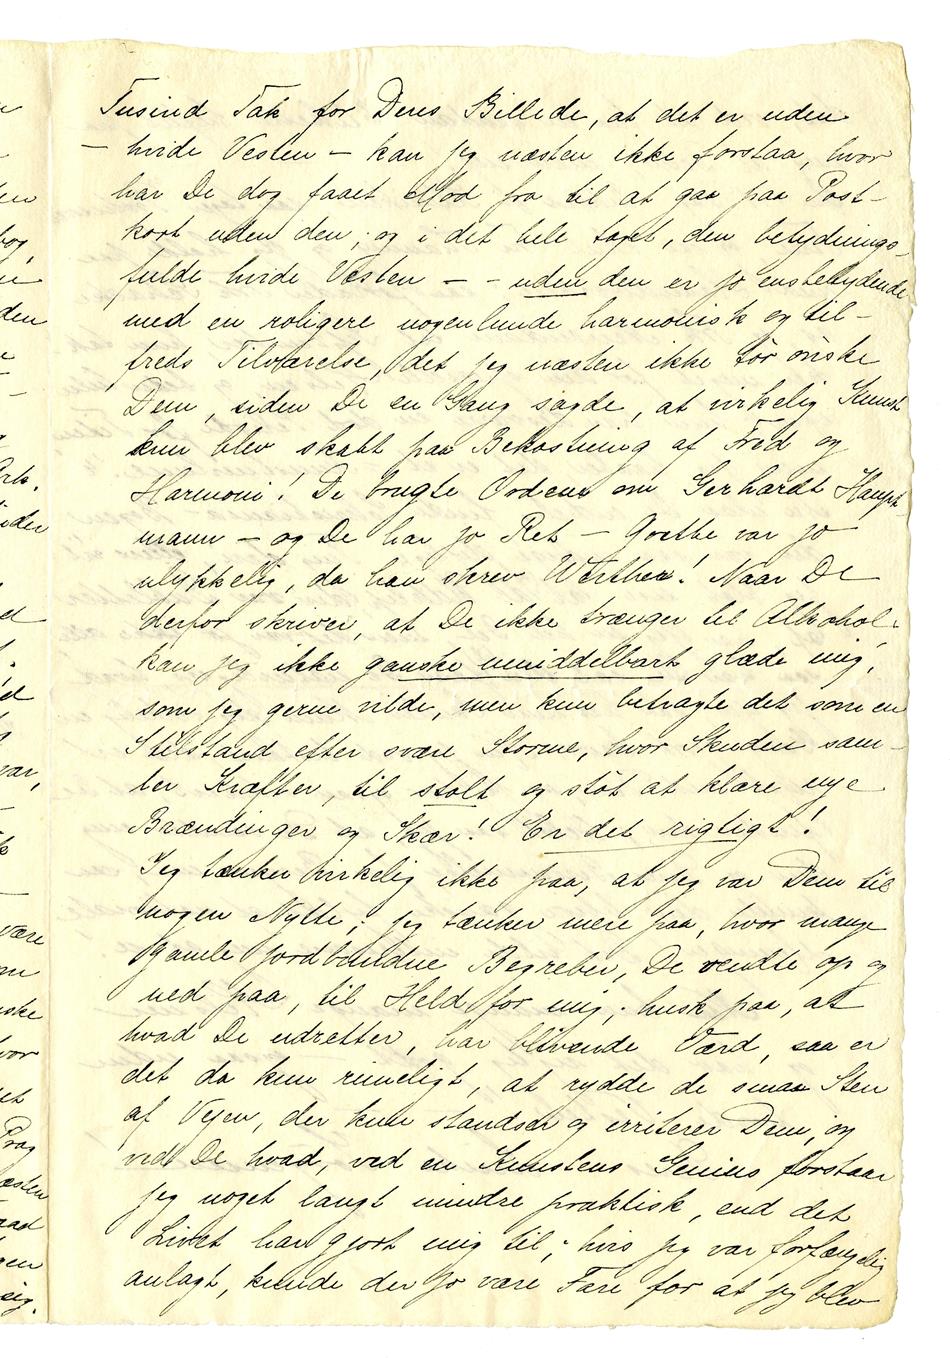 Tusind Tak for Deres Billede, at det er uden
– hvide Vesten – kan jeg næsten ikke forstaa, hvor
har De dog faaet Mod fra til at gaa paa Post-
kort uden den; og i det hele taget, den betydnings-
fulde hvide Vesten – – uden den er jo ensbetydende
med en roligere nogenlunde harmonisk og til-
freds Tilværelse, det jeg næsten ikke tör önske
Dem, siden De en Gang sagde, at virkelig Kunst
kun blev skabt paa Bekostning af Fred og
Harmoni! De brugte Ordene om Gerhardt Haupt-
mann – og De har jo Ret – Goethe var jo
ulykkelig, da han skrev Werther! Naar De
derfor skriver, at De ikke trænger til Alkohol-
kan jeg ikke ganske umiddelbart glæde mig,
som jeg gerne vilde, men kun betragte det som en
Stilstand efter svære Storme, hvor Skuden sam-
ler Kræfter, til stolt og stöt at klare nye
Brændinger og Skær! Er det rigtigt!
Jeg tænker virkelig ikke paa, at jeg var Dem til
nogen Nytte; jeg tænker mere paa, hvor mange
gamle jordbundne Begreber, De vendte op og
ned paa, til Held for mig; husk paa, at
hvad De udretter, har blivende Værd, saa er
det da kun rimeligt, at rydde de smaa Sten
af Vejen, der kun standser og irriterer Dem, og
ved De hvad, ved en Kunstens Genius forstaar
jeg noget langt mindre praktisk, end det
Livet har gjort mig til; hvis jeg var forfængelig
anlagt, kunde der jo være Fare for at jeg blev
en
bog,
den
Arb.
ider
ed
var,
være
iske
vor
et
Prag
æsten
aad
gen
sig.